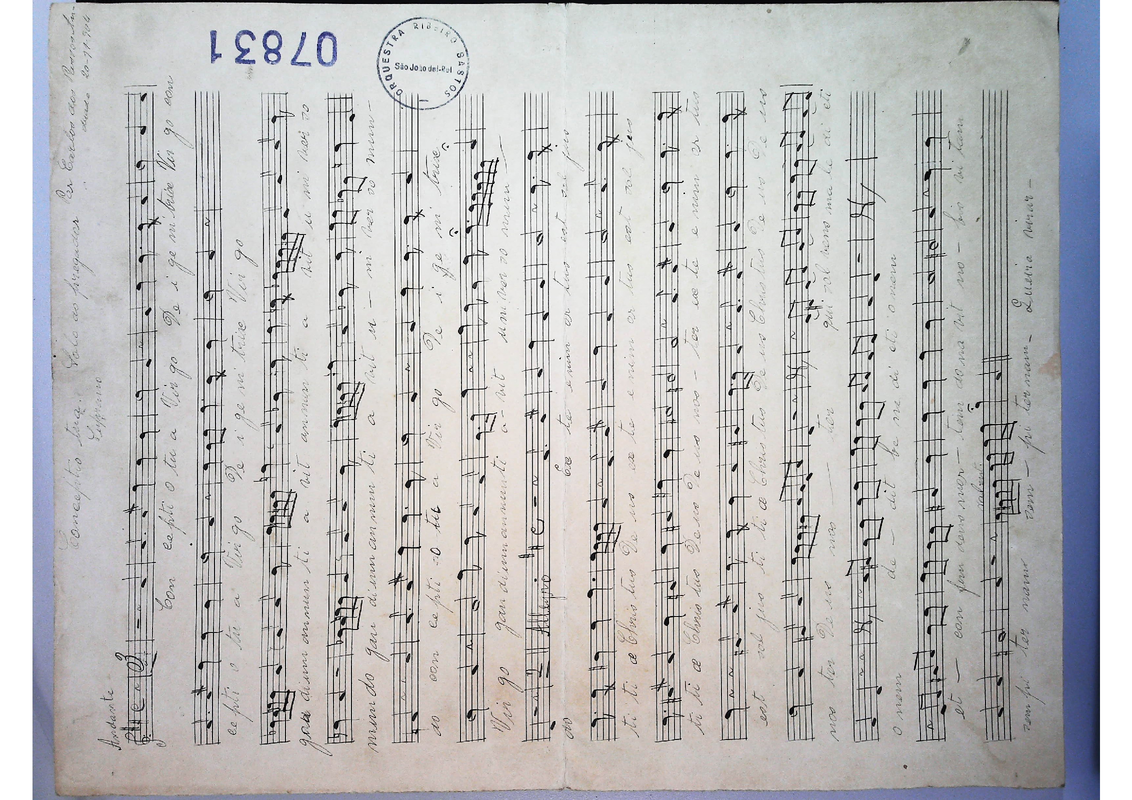 Conceptio tua Solo ao pregador
Soprano
Andante
Con ce pti o tu a Vir go De i ge ni trix Vir go con
ce pti o tu a Vir go De i ge ni trix Vir go
gau dium annun ti a vit annun ti a vit u ni ver so
mun do gau dium an nun ti a vit u ni ver so mun
do con ce pti o tu a Vir go De i ge ni trix
Vir go gau dium annun ti a vit u ni ver so mun
Allegro
do Ex te enim or tus est sol jus
ti ti æ Christus De us ex te e nim or tus est sol jus
ti ti æ Christus De us De us nos ter ex te e nim or tus
est sol jus ti ti æ Christus De us Christus De us De us
nos ter De us nos ter qui sol vens ma le di cti
o nem de dit be ne di cti o nem
et con fun dens mor tem do na vit no bis vi tam
vi tam sem pi ter nam
07831
ORQUESTRA RIBEIRO BASTOS
São João del-Rei